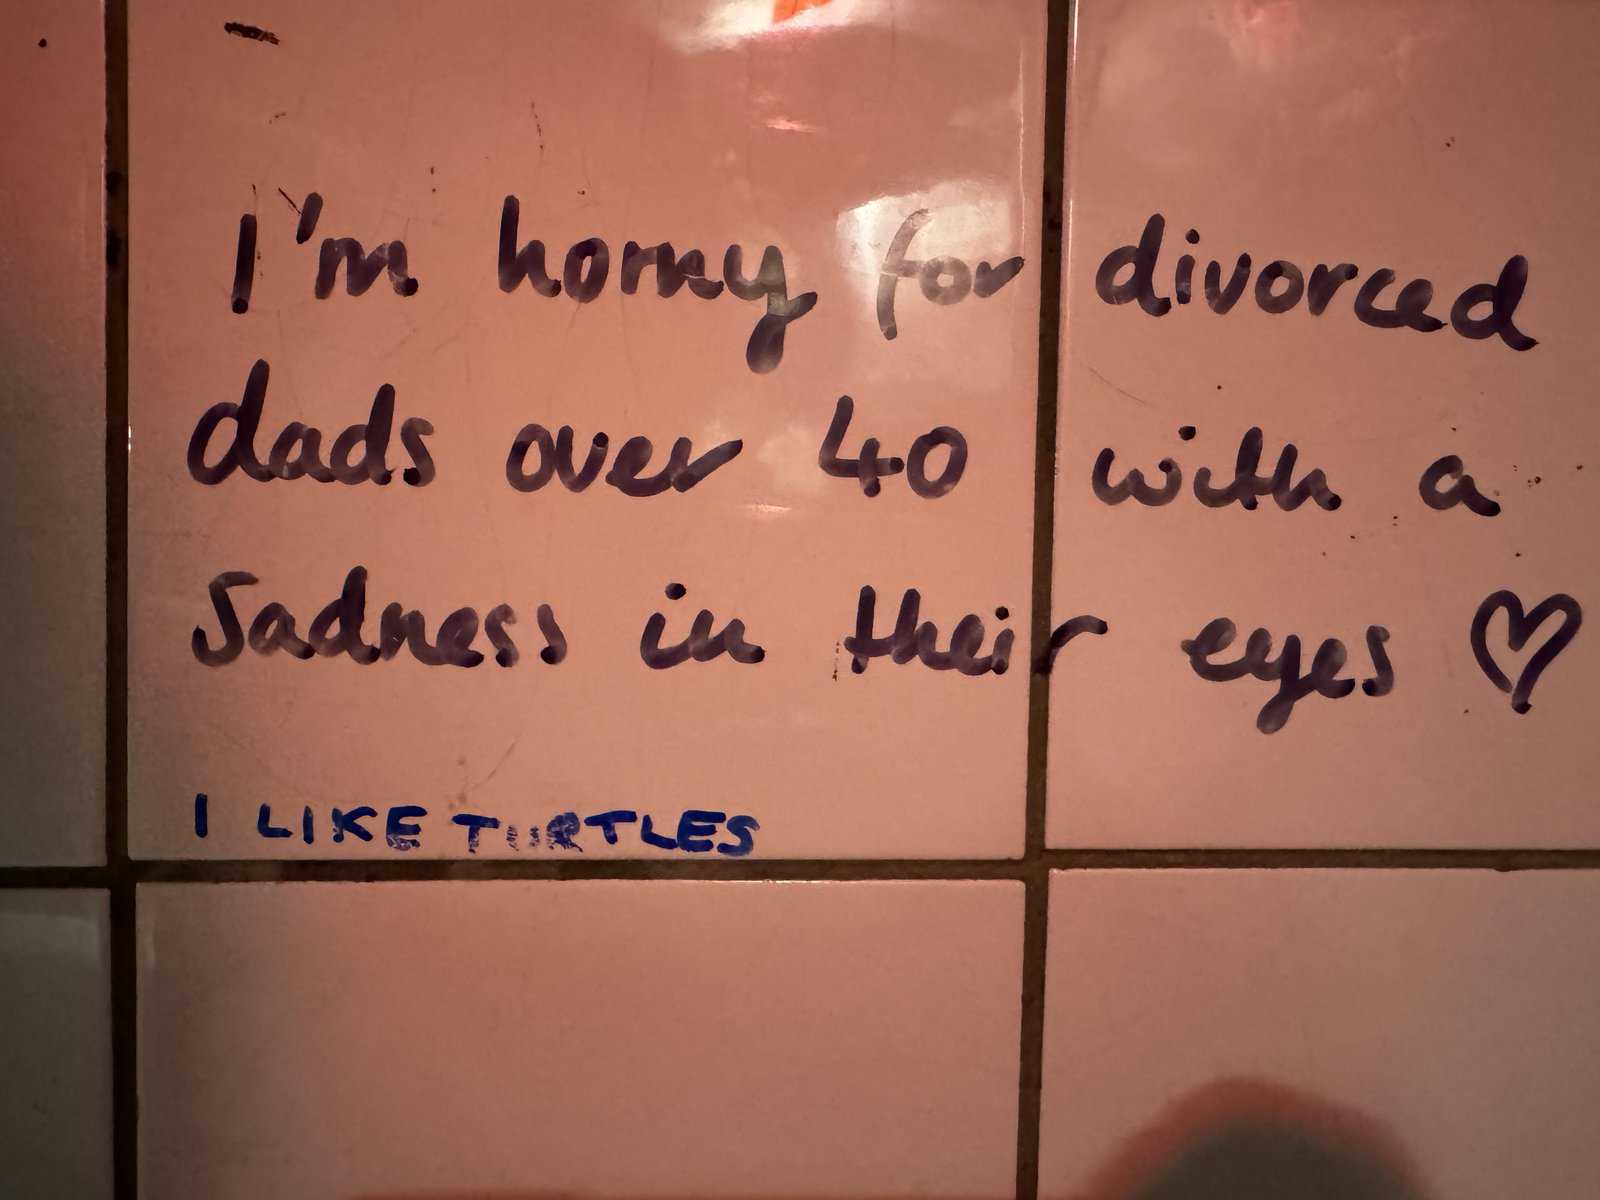 I'm horny for divorced
dads over 40 with a
sadness in their eyes ♡
I LIKE TURTLES